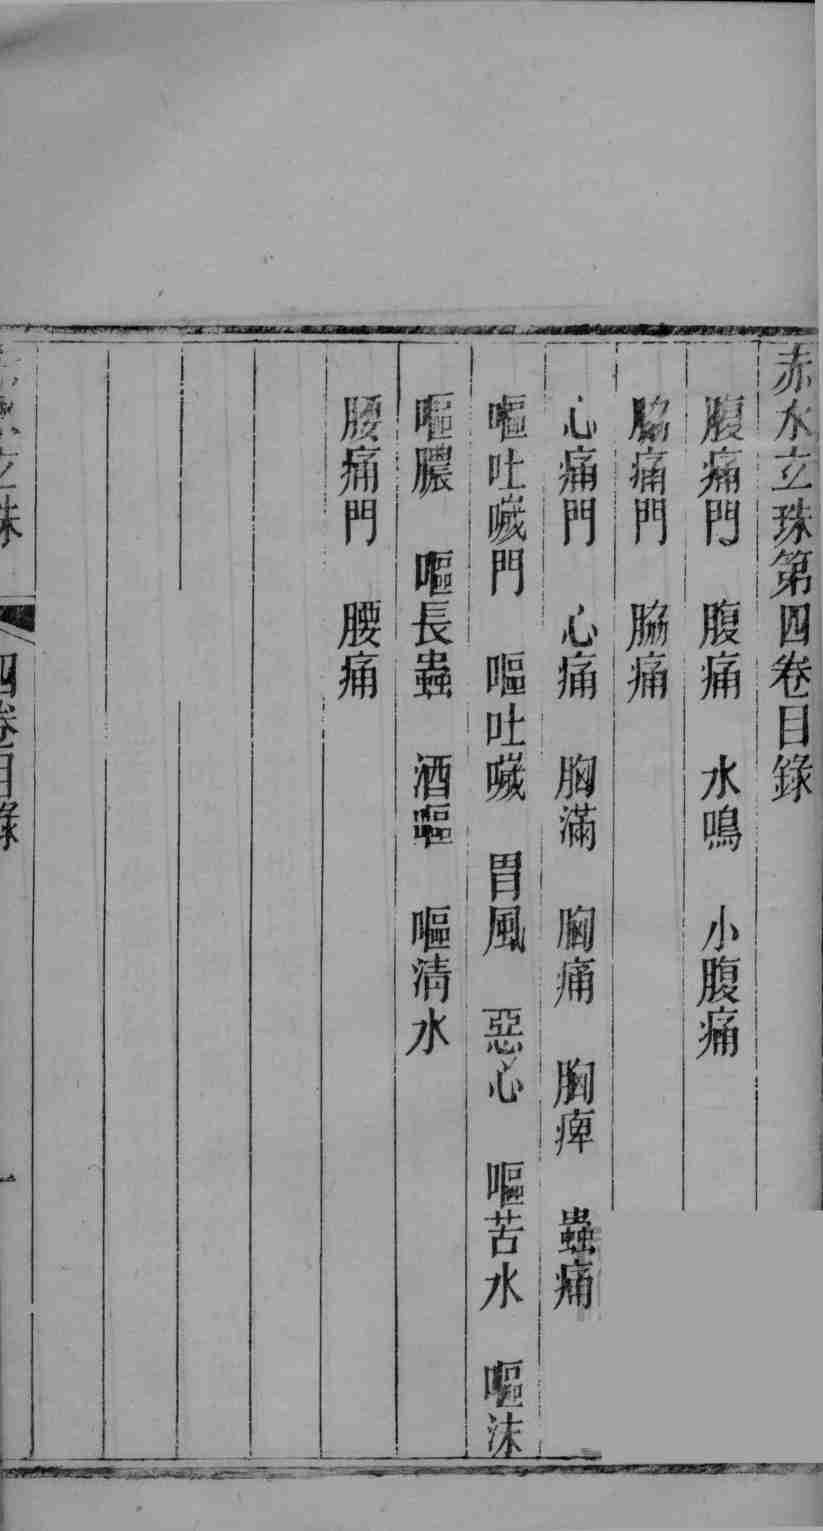 赤水玄珠第四卷目錄
腹痛門　腹痛　水鳴　小腹痛
脇痛門　脇痛
心痛門　心痛　胸滿　胸痛　胸痺　蟲痛
嘔吐噦門　嘔吐噦　胃風　惡心　嘔苦水　嘔沫
嘔膿　嘔長蟲　酒嘔　嘔清水
腰痛門　腰痛
赤水玄珠　四卷目錄　一